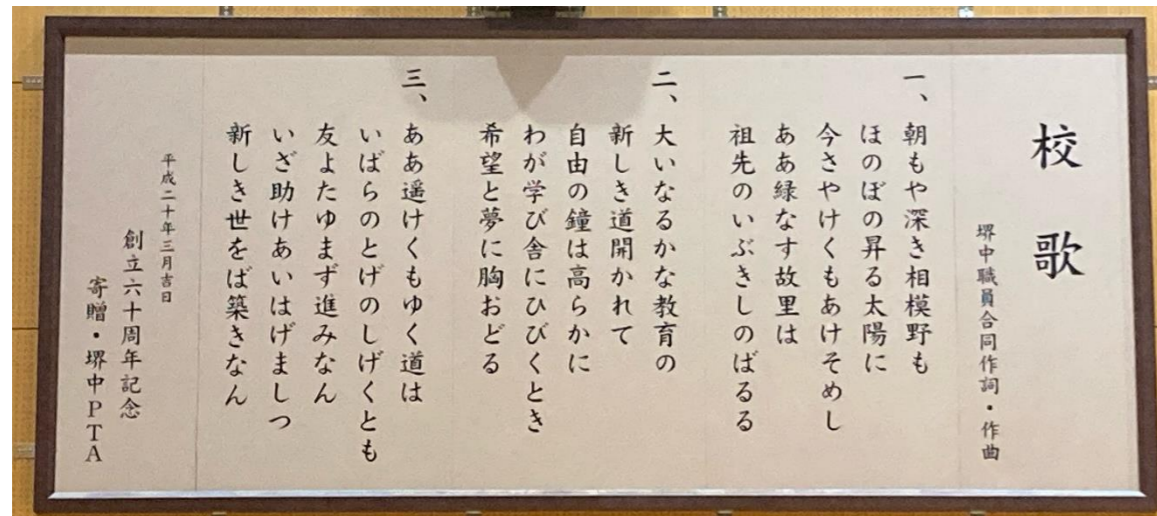 校歌
堺中職員合同作詞・作曲
一、朝もや深き相模野も
ほのぼの昇る太陽に
今さやけくもあけそめし
ああ緑なす故里は
祖先のいぶきしのばるる
二、大いなるかな教育の
新しき道開かれて
自由の鐘は高らかに
わが学び舎にひびくとき
希望と夢に胸おどる
三、ああ遥けくもゆく道は
いばらのとげのしげくとも
友よたゆまず進みなん
いざ助けあいはげましつ
新しき世をば築きなん
平成二十年三月吉日
創立六十周年記念
寄贈・堺中PTA